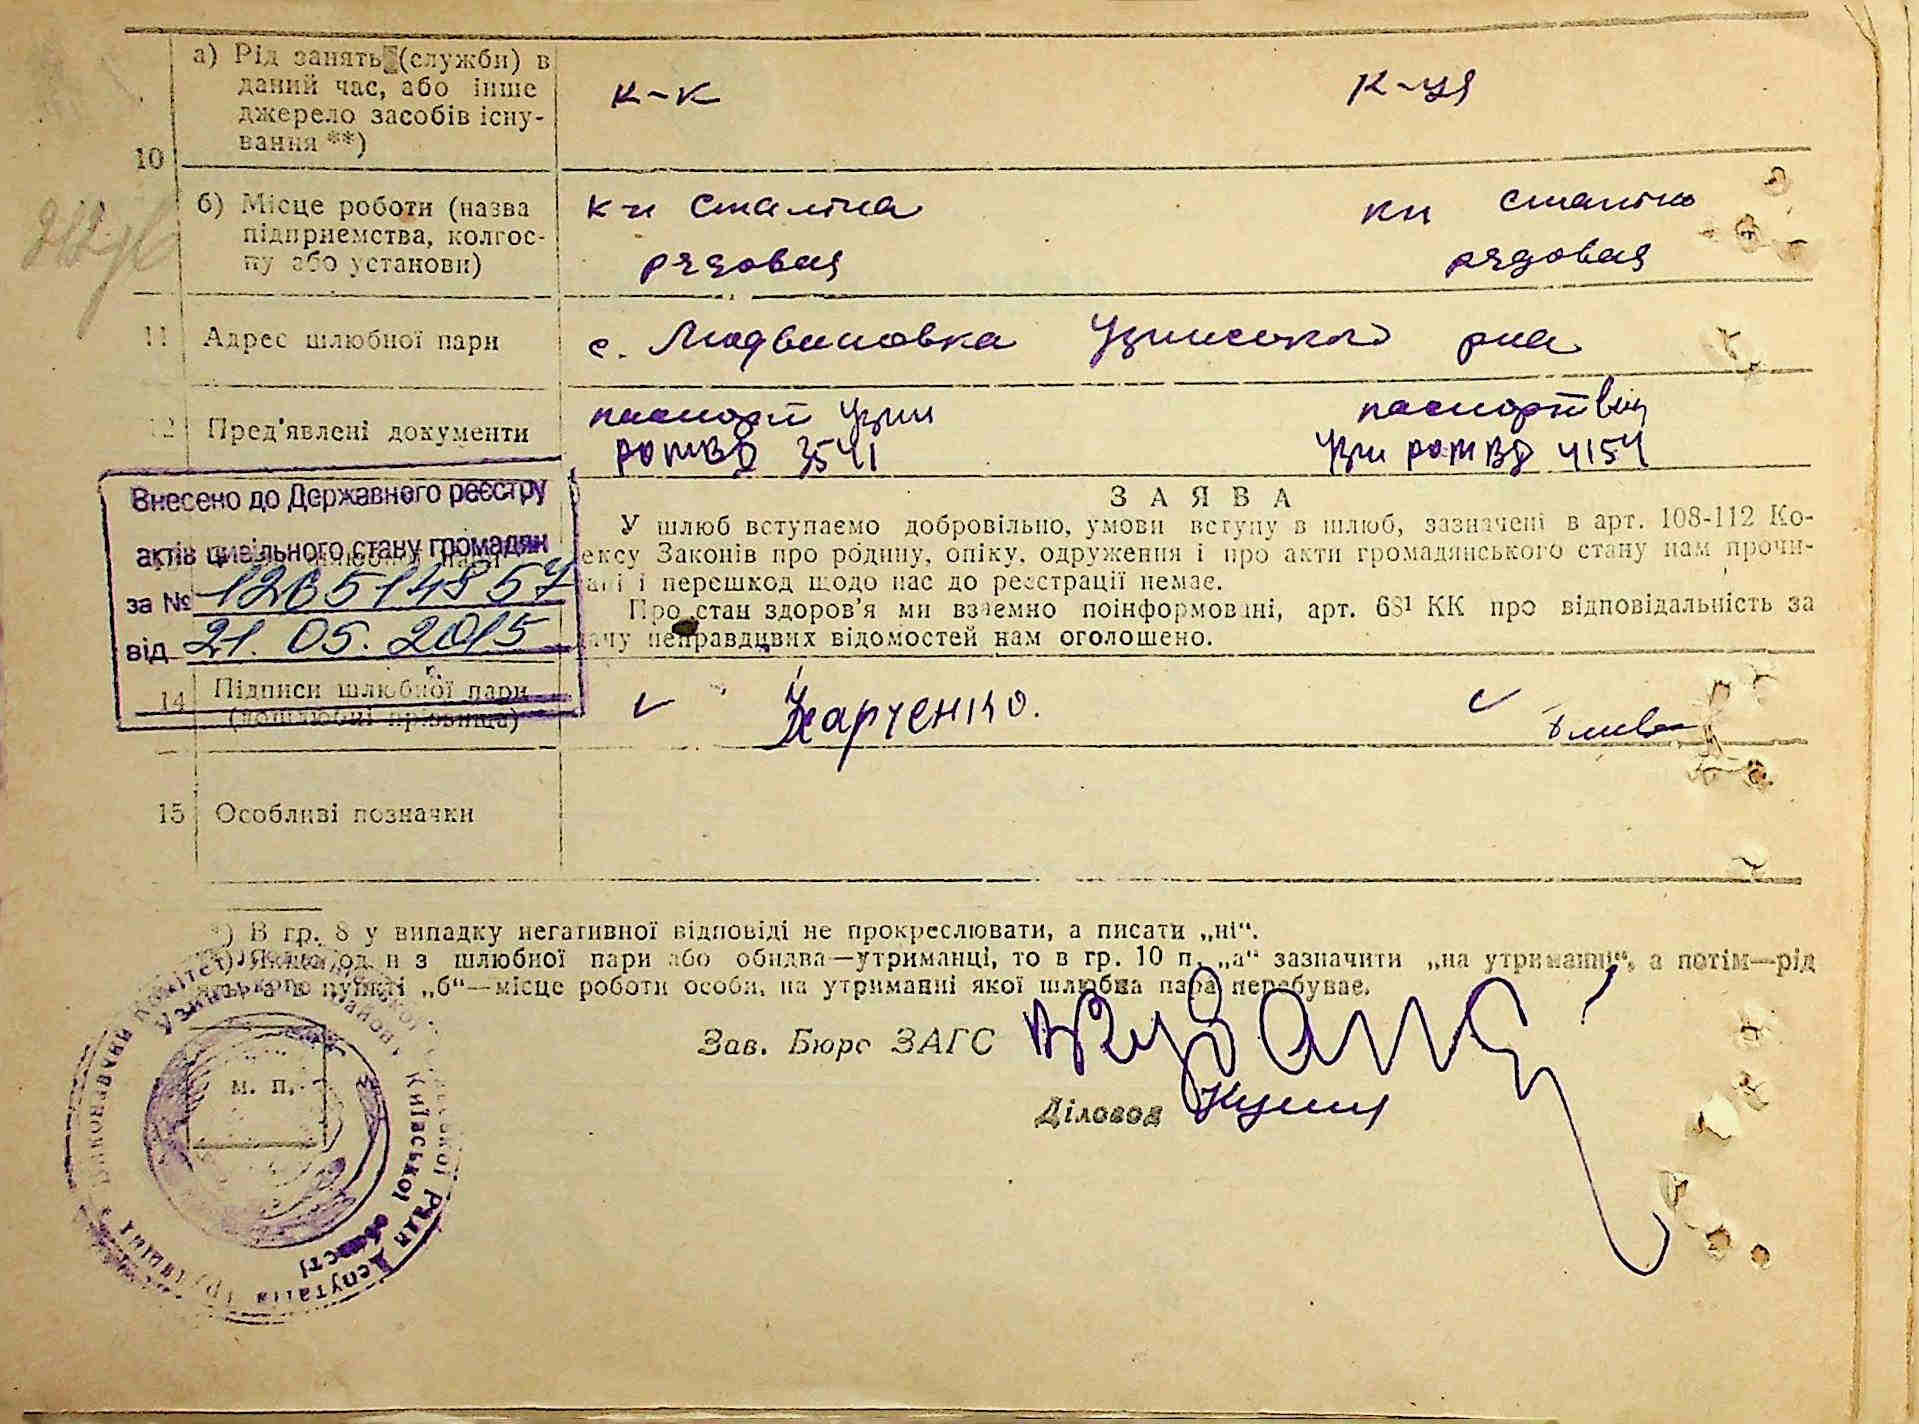 10
а) Рід занять (служби) в
даний час, або інше
джерело засобів існу-
вання **)
к-к
к-ця
б) Місце роботи (назва
підприємства, колгос-
пу або установи)
к-п Сталіна
рядовая
кп Сталіна
рядовая
11 Адрес шлюбної пари
с. Людвиновка Узинского рна
12 Пред'явлені документи
паспорт Узин
РОМВД 3541
паспорт
Узи РОМВД 4154
Внесено до Державного реєстру
актів цивільного стану громадян
за № 126514857
від 21. 05. 2015
г.
З А Я В А
У шлюб вступаємо добровільно, умови вступу в шлюб, зазначені в арт. 108-112 Ко-
ексу Законів про родину, опіку, одруження і про акти громадянського стану нам прочи-
ані і перешкод щодо нас до реєстрації немає.
Про стан здоров'я ми взаємно поінформовані, арт. 68¹ КК про відповідальність за
ачу неправдивих відомостей нам оголошено.
14 Підписи шлюбної пари
(дошлюбні прізвища)
Харченко.
15 Особливі позначки
*) В гр. 8 у випадку негативної відповіді не прокреслювати, а писати „ні“.
Якщо один з шлюбної пари або обидва—утриманці, то в гр. 10 п. „а“ зазначити „на утриманні“, а потім—рід
а по пункті „б“—місце роботи особи, на утриманні якої шлюбна пара перебуває.
Зав. Бюро ЗАГС
Діловод
м. п.
Виконавчий Комітет
Узинської районної
Ради Депутатів Трудящих
Київської області